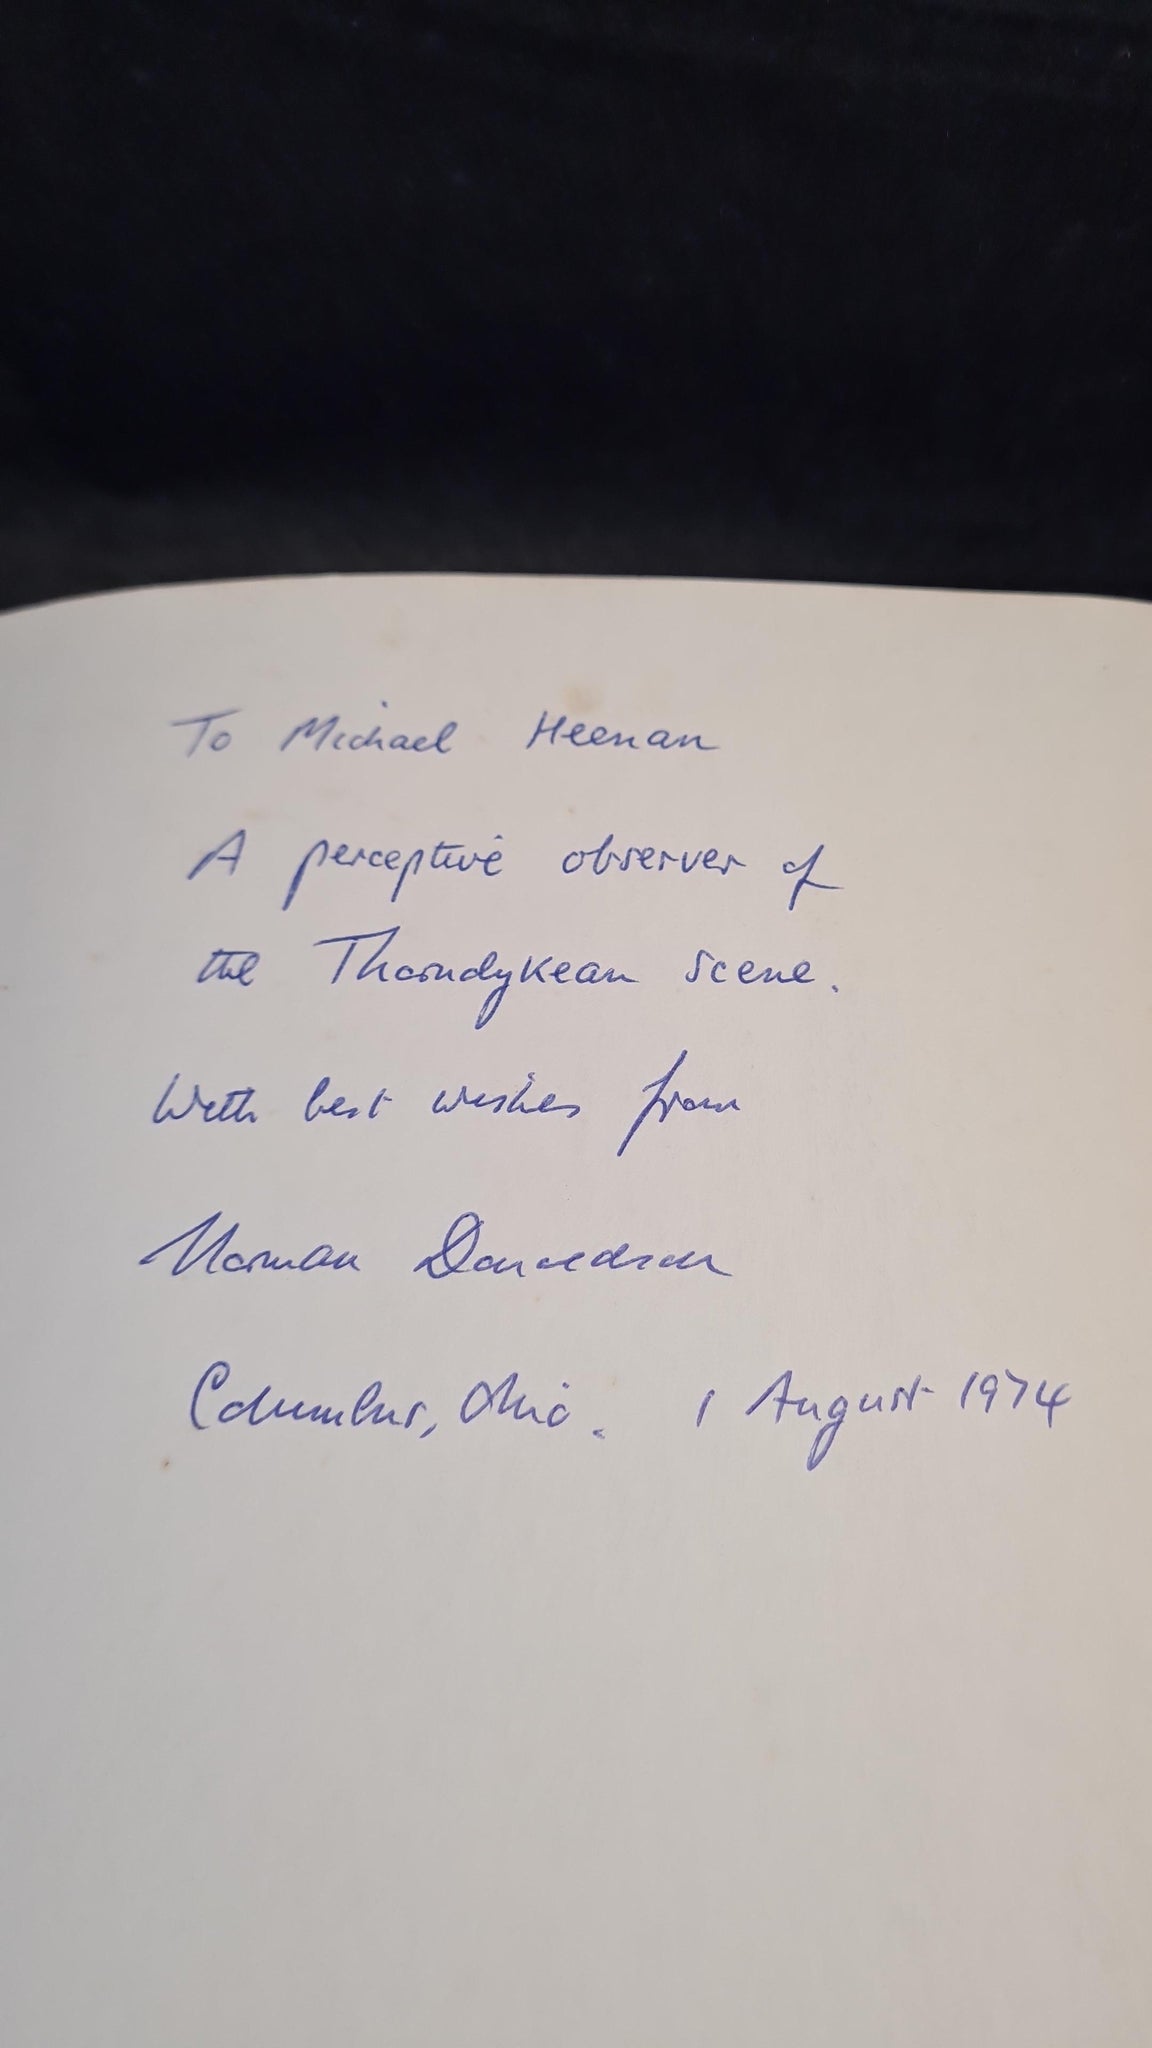 To Michael Heenan
A perceptive observer of
the Thorndykean scene.
With best wishes from
Norman Donaldson
Columbus, Ohio. 1 August 1974